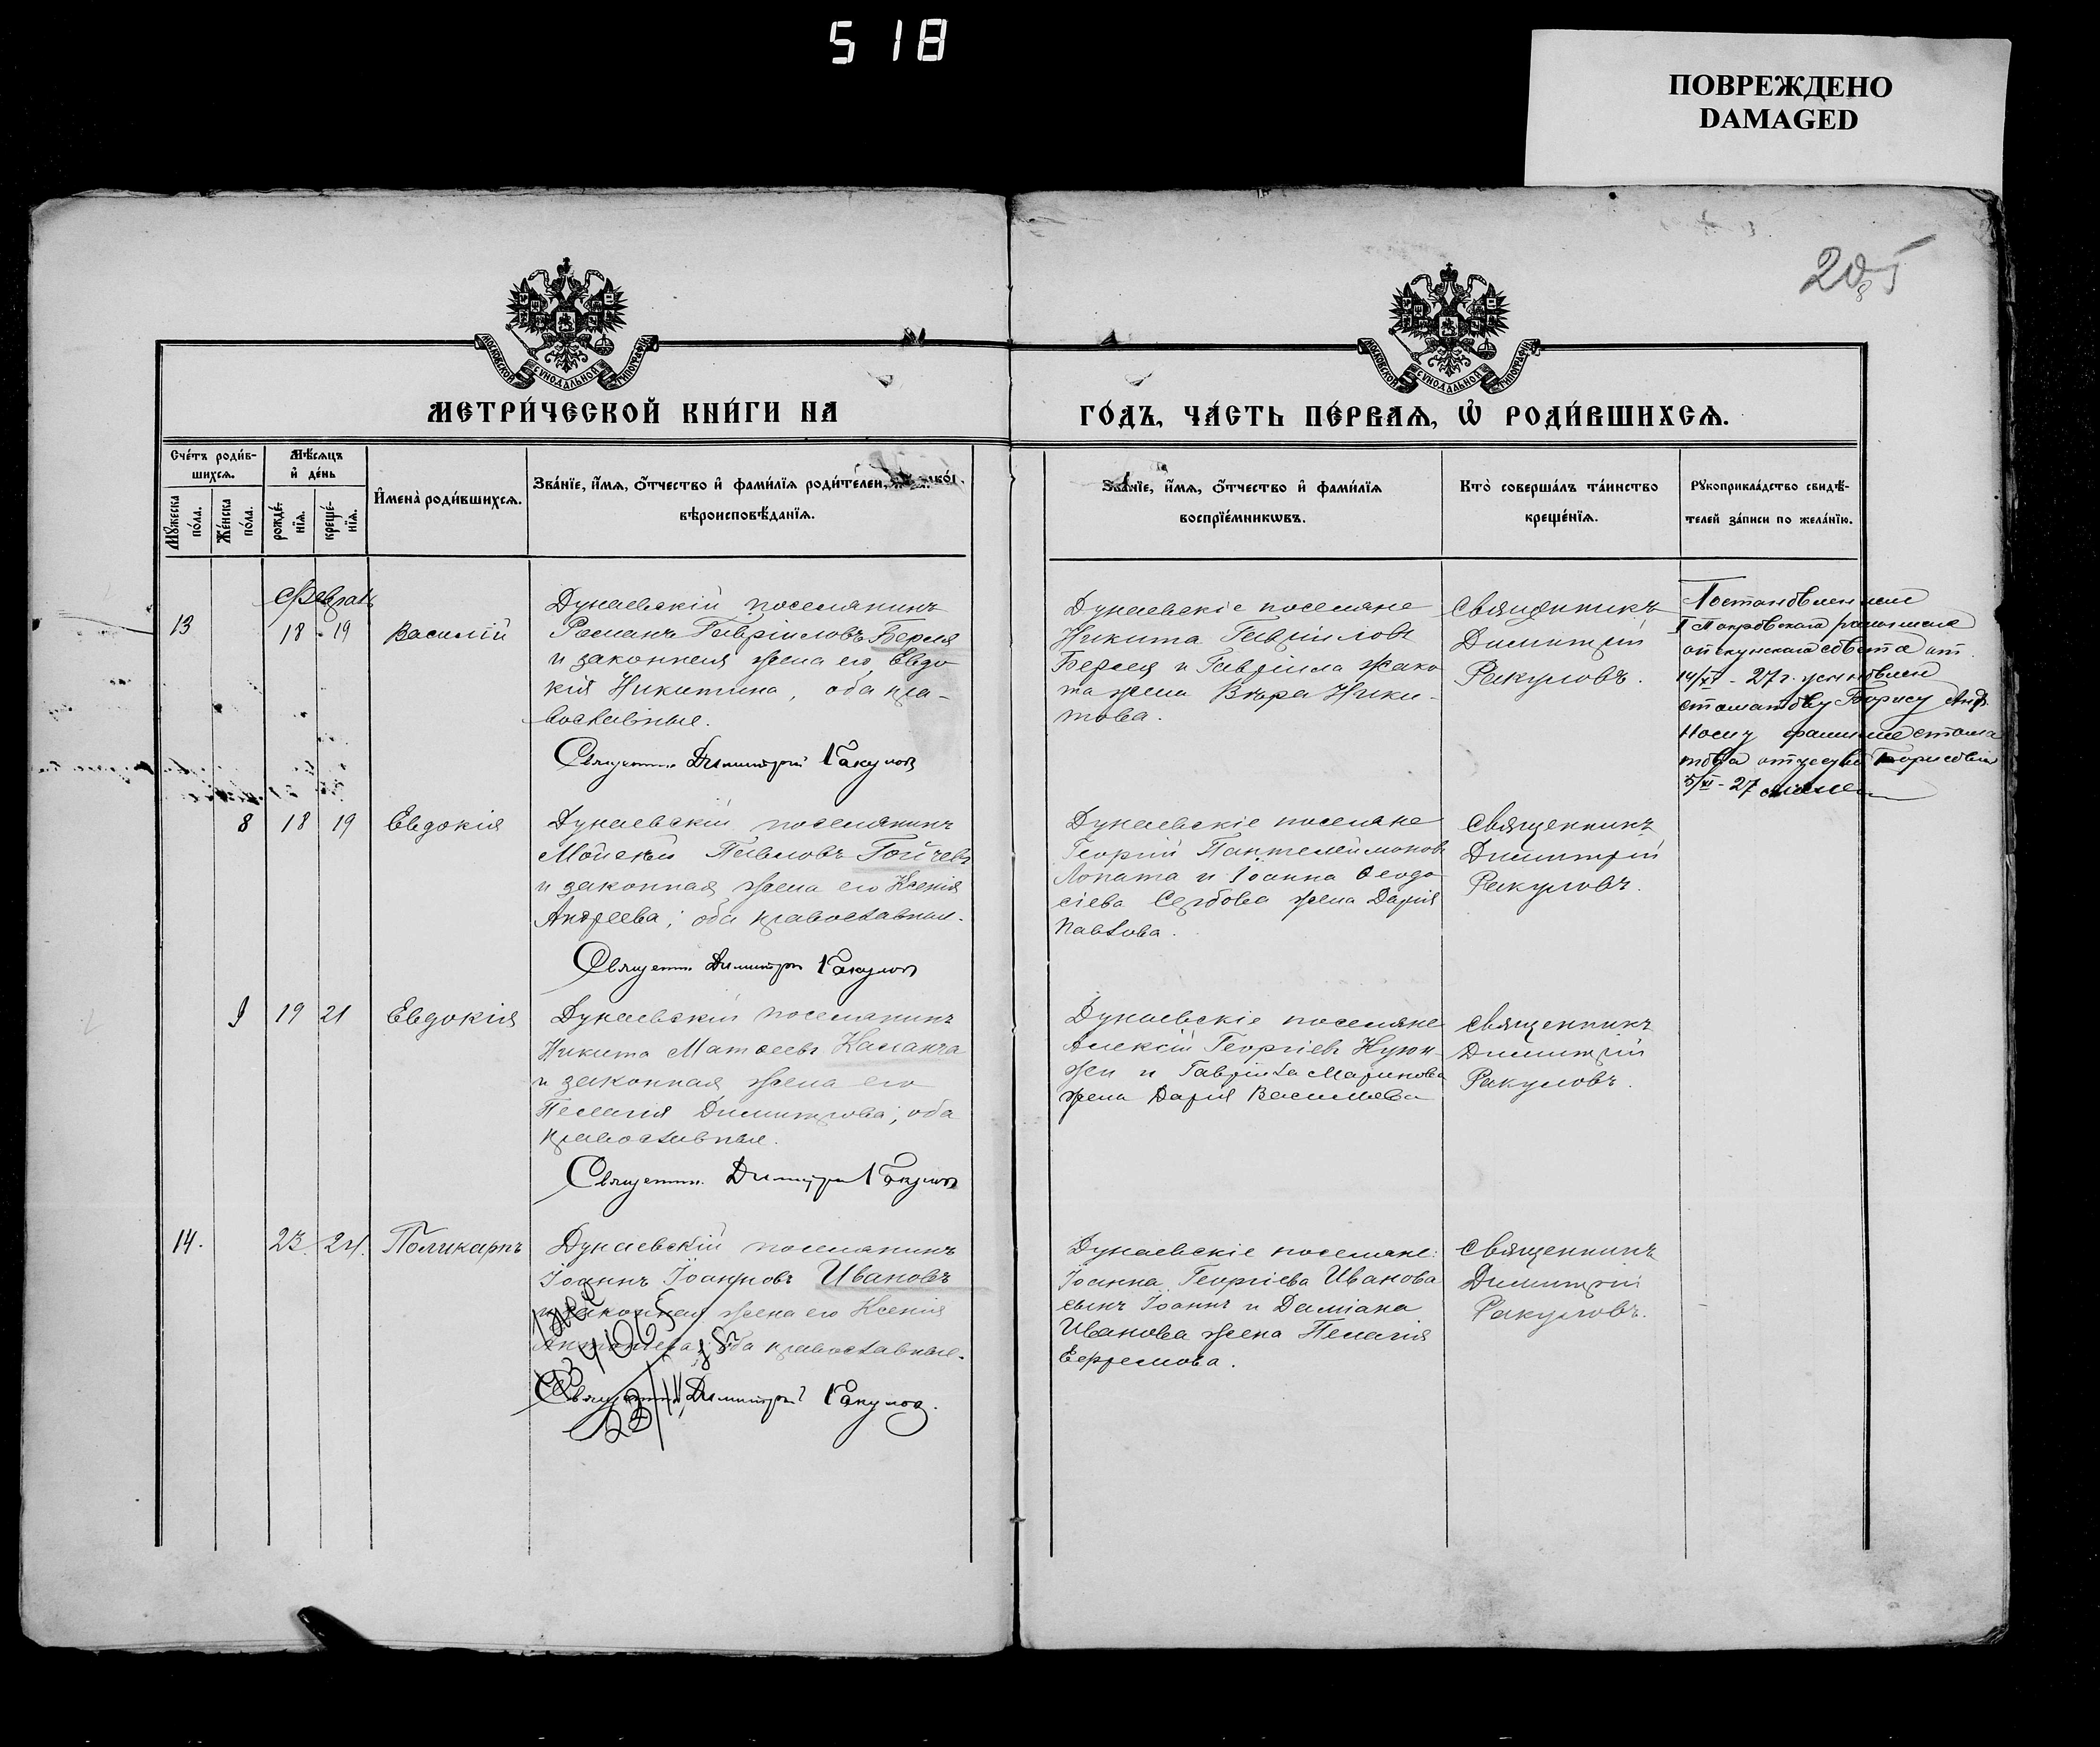 518
ПОВРЕЖДЕНО
DAMAGED
205
МОСКОВСКОЙ СѴНОДАЛЬНОЙ ТИПОГРАФІИ
МОСКОВСКОЙ СѴНОДАЛЬНОЙ ТИПОГРАФІИ
МЕТРИ́ЧЕСКОЙ КНИ́ГИ НА
ГО́ДЪ, ЧА́СТЬ ПЕ́РВАѦ, Ѡ҆ РОДИ́ВШИХСѦ.
Сче́тъ роди́в-
шихсѧ.
Мꙋ́жеска по́ла.
Же́нска по́ла.
Мѣ́сѧцъ
и҆ де́нь
рожде́-нїѧ.
креще́-нїѧ.
И҆мена̀ роди́вшихсѧ.
Зва́нїе, и҆́мѧ, ѻ҆́тчество и҆ фами́лїѧ роди́телей,
вѣроисповѣ́данїѧ.
Зва́нїе, и҆́мѧ, ѻ҆́тчество и҆ фами́лїѧ
воспрїе́мникѡвъ.
Кто̀ соверша́лъ та́инство
креще́нїѧ.
Рꙋкоприкла́дство свидѣ́-
телей за́писи по жела́нїю.
Февраль
13
18 19
Василій
Дунаевскій поселянинъ
Романъ Гавріиловъ Берля
и законная жена его Евдо
кія Никитина, оба пра-
вославные.
Священн. Димитрій Ракулов
Дунаевскіе поселяне
Никита Гавріиловъ
Берля и Гавріила
жена Вѣра Ники-
това.
Священникъ
Димитрій
Ракуловъ.
Постановлением
Покровского
опекунского совета от
14/XI - 27 г. усыновлен
Борису
Носит фамилие
отчество Борисович
5/XI - 27
8 18 19
Евдокія
Дунаевскій поселянинъ
Моисей Павловъ Гойчевъ
и законная жена его Ксенія
Андреева; оба православные.
Священн. Димитрій Ракулов
Дунаевскіе поселяне
Георгій Пантелеймоновъ
Лопата и Іоанна Ѳеодо
сіева Сербова жена Дарія
Павлова.
Священникъ
Димитрій
Ракуловъ.
9 19 21
Евдокія
Дунаевскій поселянинъ
Никита Матѳеевъ Каланча
и законная жена его
Пелагія Димитрова; оба
православные.
Священн. Димитрій Ракулов
Дунаевскіе поселяне
Алексій Георгіевъ Куюн-
жи и Гавріила Маринова
жена Дарія Васильева
Священникъ
Димитрій
Ракуловъ.
14. 23. 24.
Поликарпъ
Дунаевскій поселянинъ
Іоаннъ Іоанновъ Ивановъ
и законная жена его Ксенія
оба православные.
Священн. Димитрій Ракулов.
Дунаевскіе поселяне:
Іоанна Георгіева Иванова
сынъ Іоаннъ и Даміана
Иванова жена Пелагія
Ефремова.
Священникъ
Димитрій
Ракуловъ.